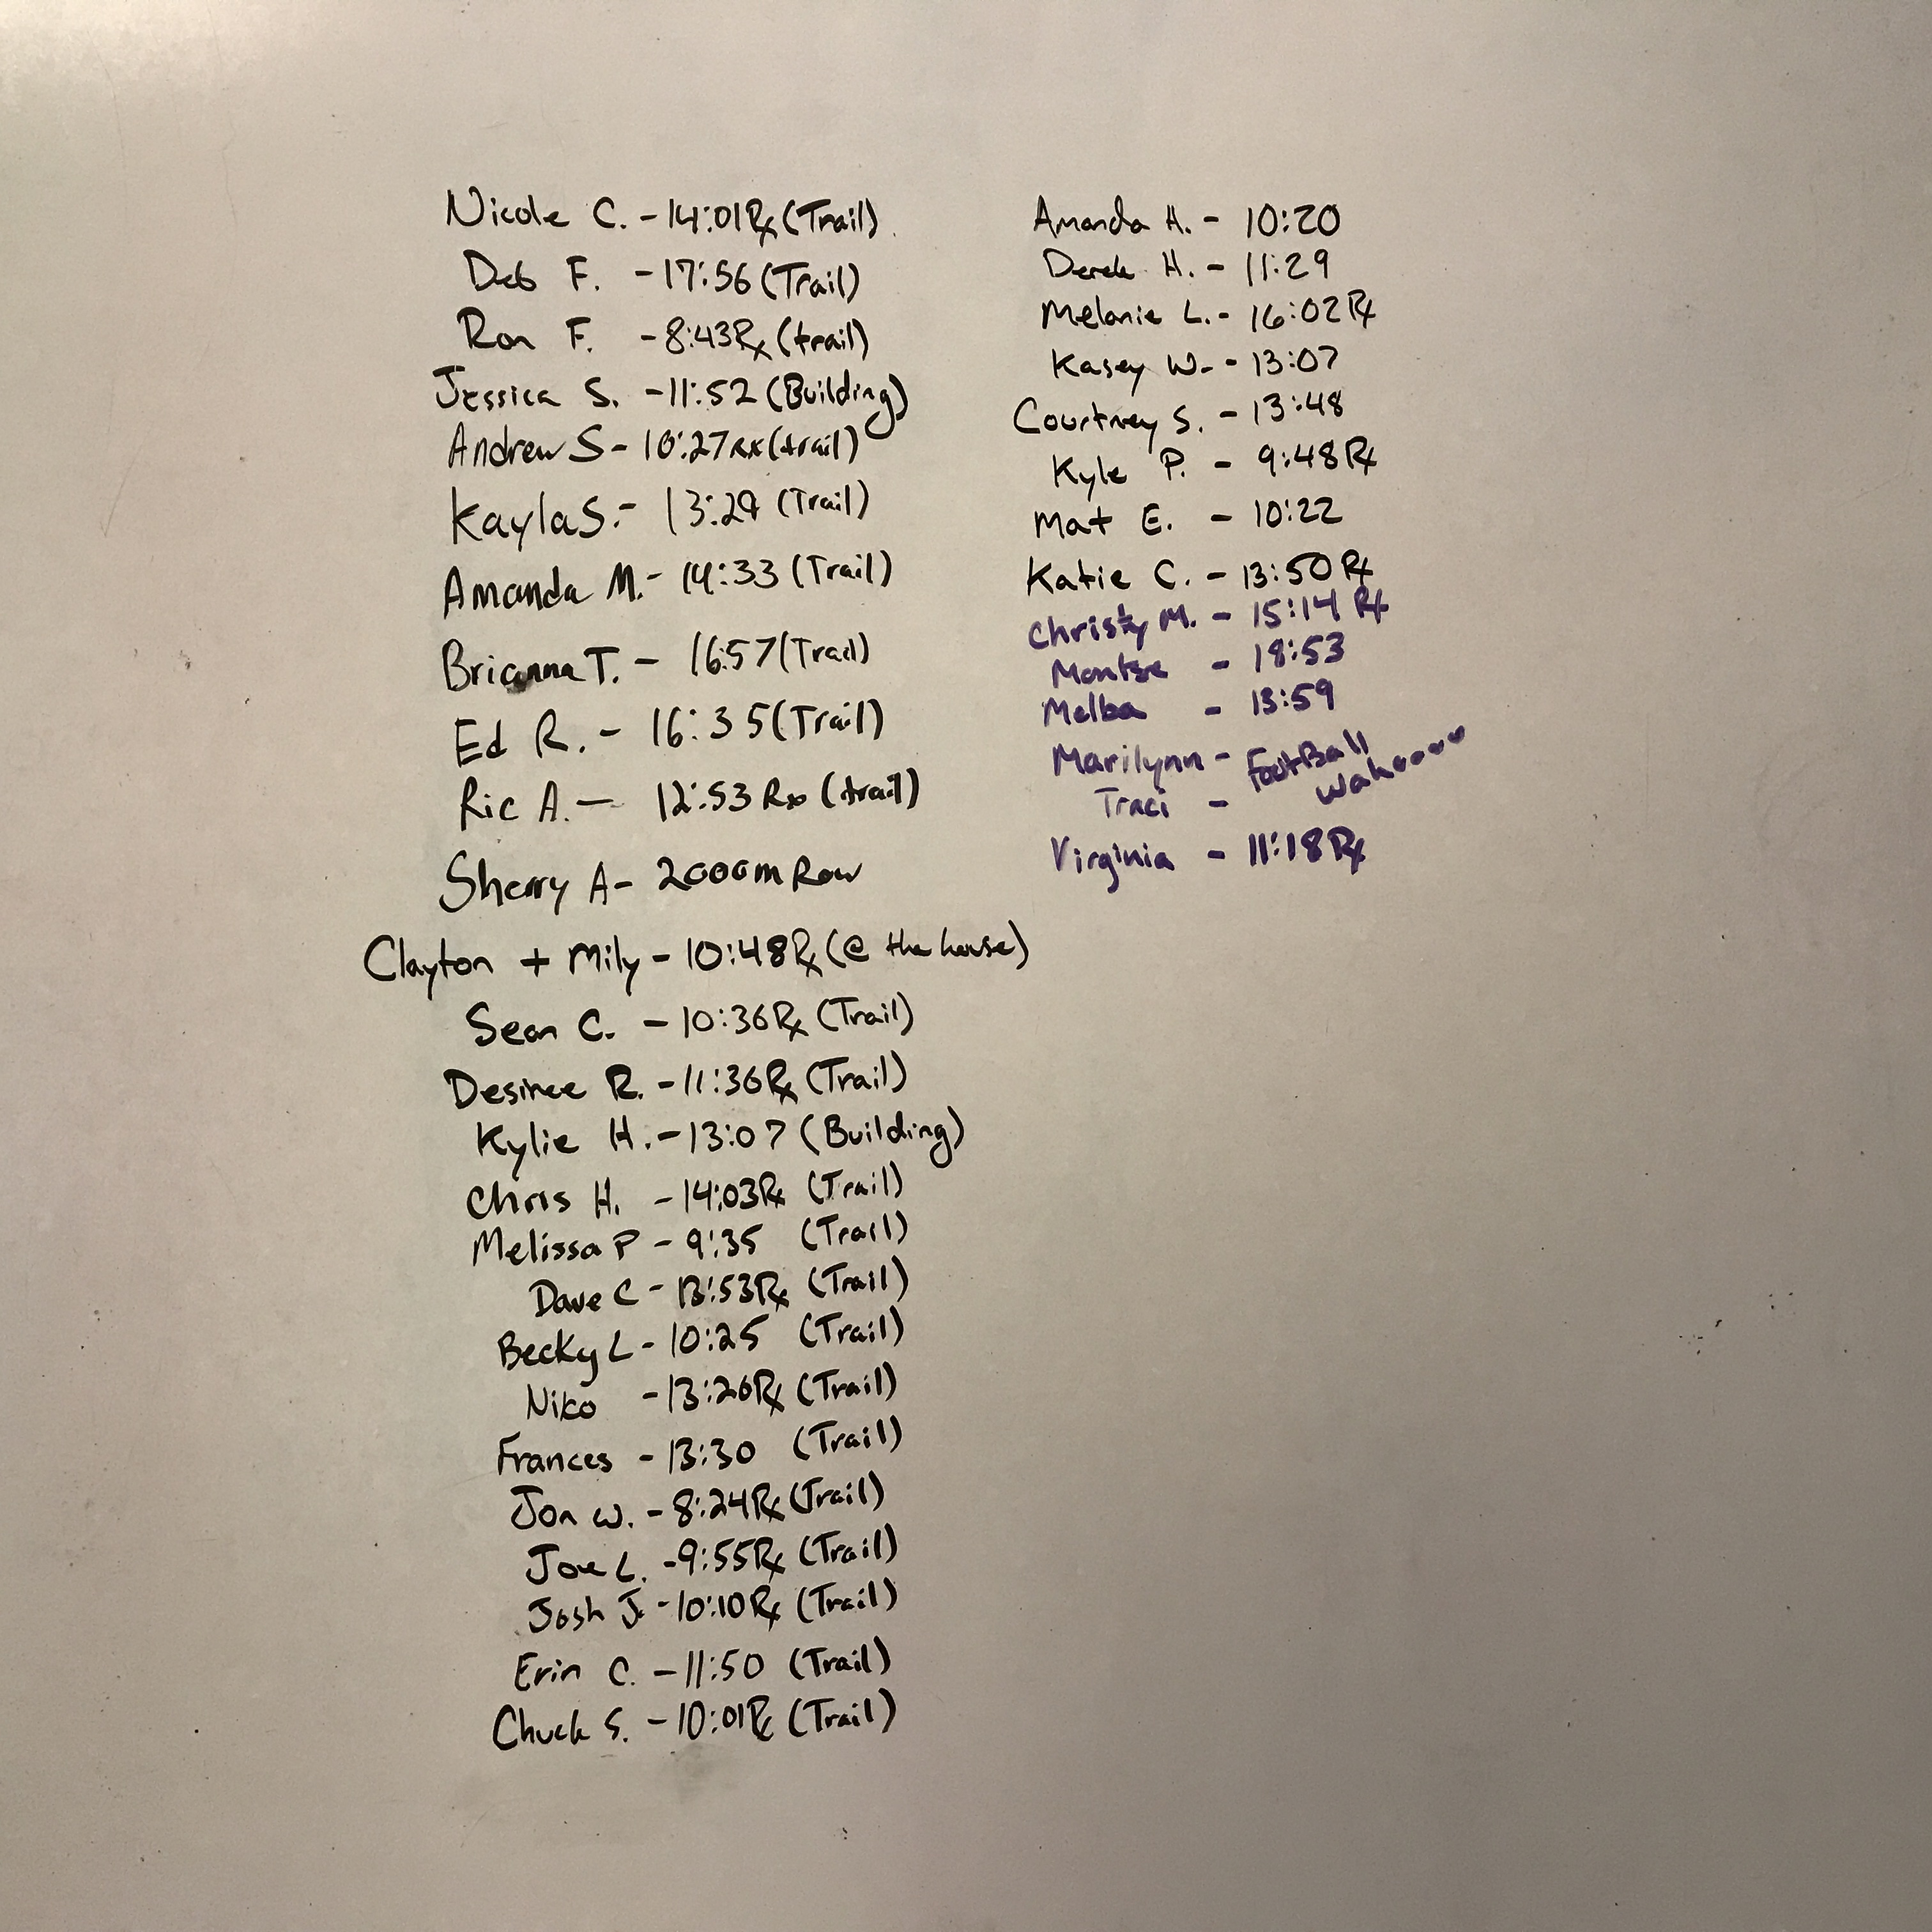 Nicole C. - 14:01 Rx (Trail)
Deb F. - 17:56 (Trail)
Ron F. - 8:43 Rx (trail)
Jessica S. - 11:52 (Building)
Andrew S - 10:27 RX (trail)
Kayla S. - 13:29 (Trail)
Amanda M. - 14:33 (Trail)
Brianna T. - 16:57 (Trail)
Ed R. - 16:35 (Trail)
Ric A. - 12:53 Rx (trail)
Sherry A - 2000m Row
Clayton + Mily - 10:48 Rx (@ the house)
Sean C. - 10:36 Rx (Trail)
Desiree R. - 11:36 Rx (Trail)
Kylie H. - 13:07 (Building)
Chris H. - 14:03 Rx (Trail)
Melissa P - 9:35 (Trail)
Dave C - 13:53 Rx (Trail)
Becky L - 10:25 (Trail)
Niko - 13:26 Rx (Trail)
Frances - 13:30 (Trail)
Jon W. - 8:24 Rx (Trail)
Joe L. - 9:55 Rx (Trail)
Josh J. - 10:10 Rx (Trail)
Erin C. - 11:50 (Trail)
Chuck S. - 10:01 Rx (Trail)
Amanda H. - 10:20
Derek H. - 11:29
Melanie L. - 16:02 Rx
Kasey W. - 13:07
Courtney S. - 13:48
Kyle P. - 9:48 Rx
Mat E. - 10:22
Katie C. - 13:50 Rx
Christy M. - 15:14 Rx
Montse - 18:53
Melba - 13:59
Marilynn - FootBall
Traci - wahoooo
Virginia - 11:18 Rx